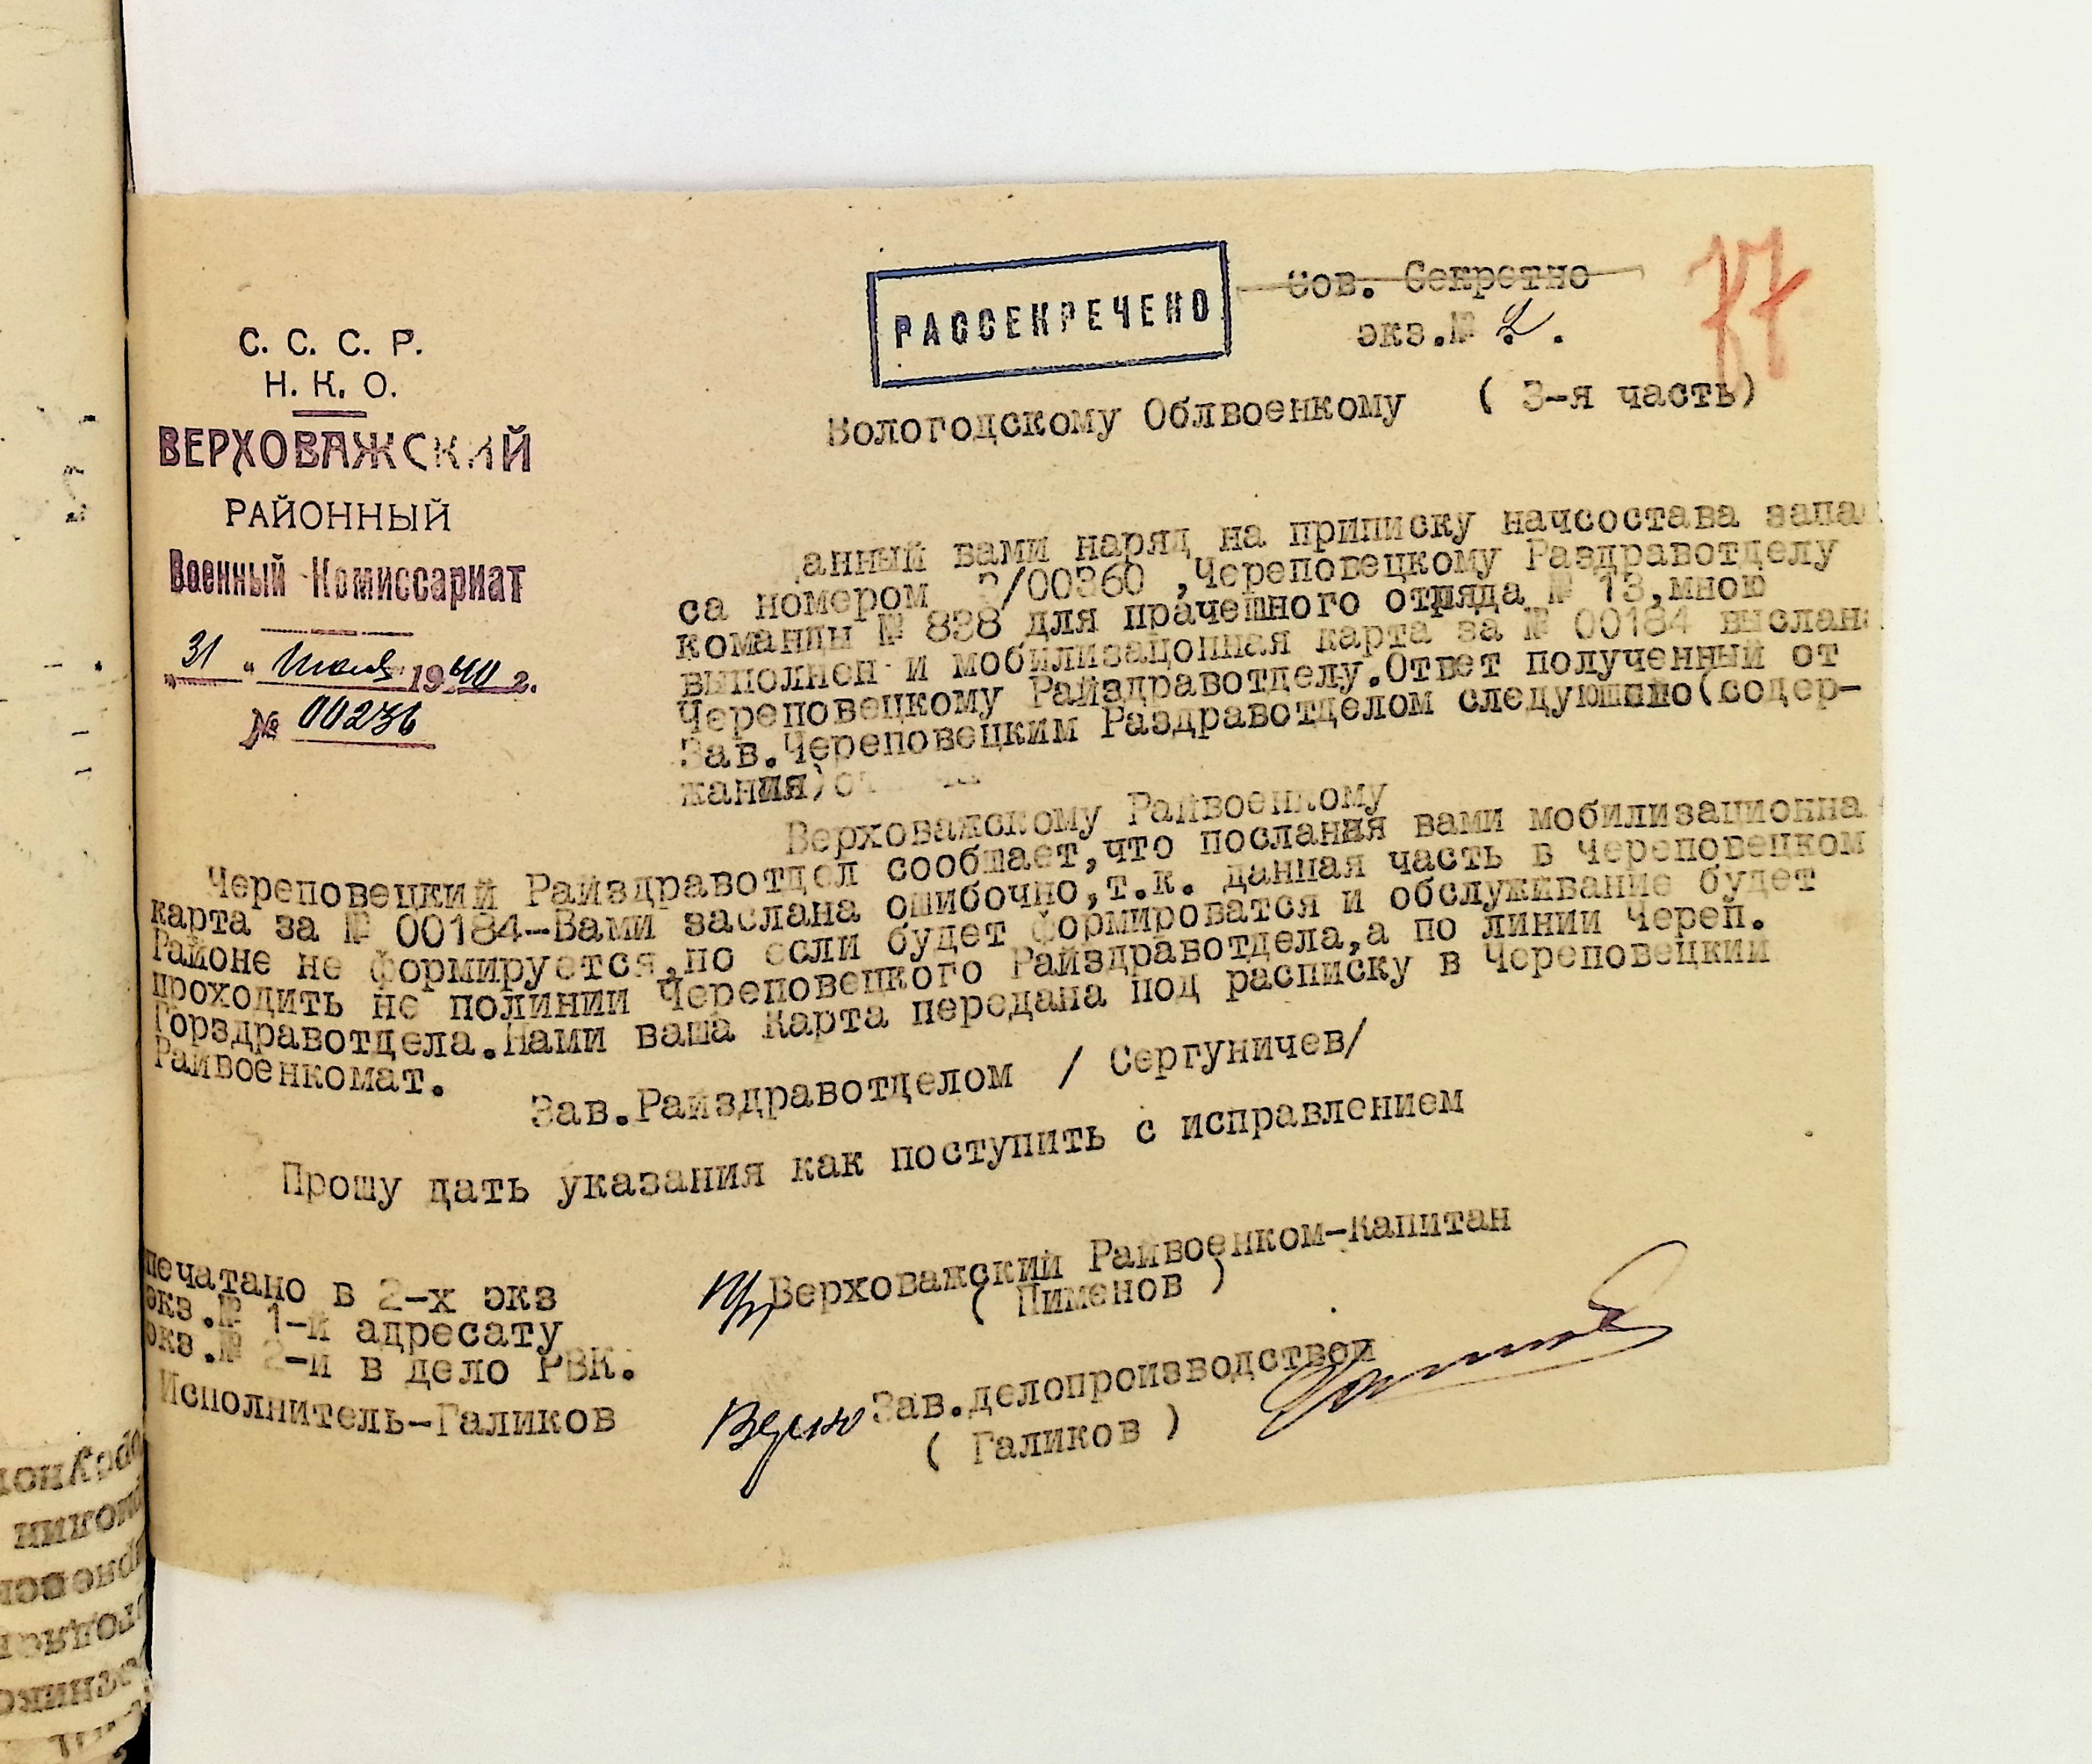 РАССЕКРЕЧЕНО
Сов. Секретно
экз.№ 2.
77
С. С. С. Р.
Н. К. О.
ВЕРХОВАЖСКИЙ
РАЙОННЫЙ
Военный Комиссариат
"31" Июля 1940 г.
№ 00236
Вологодскому Облвоенкому ( 3-я часть)
Данный вами наряд на приписку начсостава запа
са номером 3/00360 ,Череповецкому Раздравотделу
команды № 838 для прачешного отряда № 13,мною
выполнен и мобилизационная карта за № 00184 выслана
Череповецкому Райздравотделу.Ответ полученный от
Зав.Череповецким Раздравотделом следующего(содер-
жания)
Верховажскому Райвоенкому
Череповецкий Райздравотдел сообщает,что посланая вами мобилизационна
карта за № 00184-Вами заслана ошибочно,т.к. данная часть в Череповецком
Районе не формируется,но если будет формироватся и обслуживание будет
проходить не полинии Череповецкого Райздравотдела,а по линии Череп.
Горздравотдела.Нами ваша Карта передана под расписку в Череповецкий
Райвоенкомат.
Зав.Райздравотделом / Сергуничев/
Прошу дать указания как поступить с исправлением
Верховажский Райвоенком-Капитан
( Пименов )
печатано в 2-х экз
экз.№ 1-й адресату
экз.№ 2-й в дело РВК.
Исполнитель-Галиков
Верно Зав.делопроизводством
( Галиков )